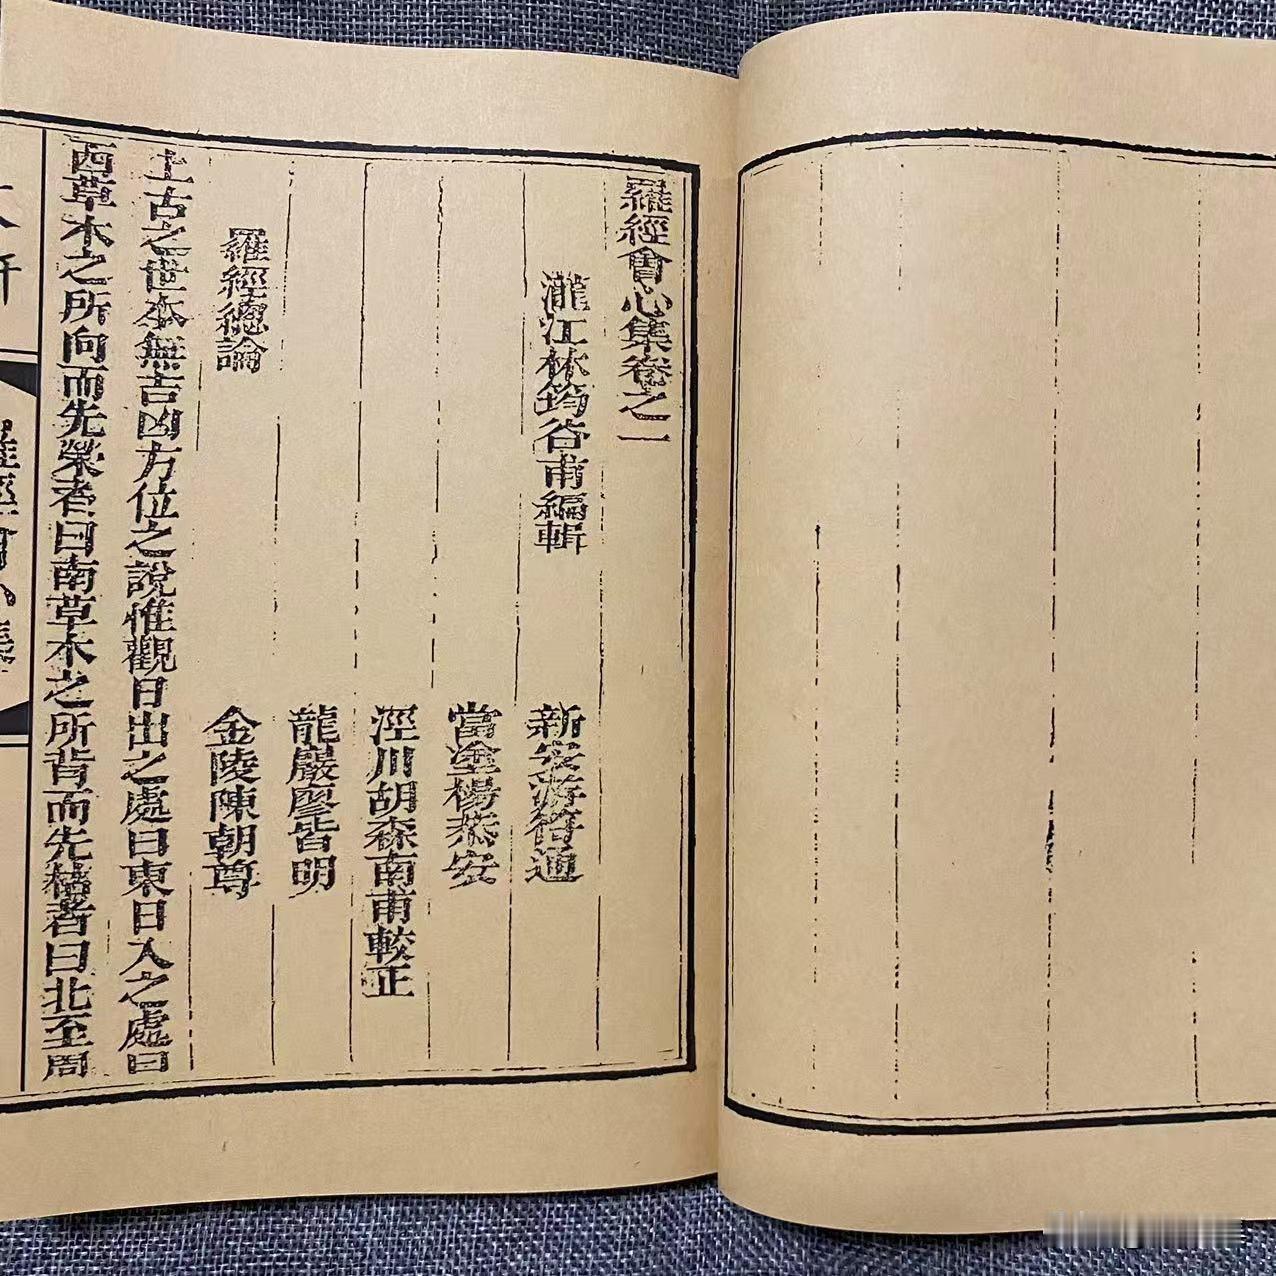 羅經會心集卷之一
瀧江林筠谷甫編輯
新安游符通
當塗楊恭安
涇川胡森南甫較正
龍巖廖皆明
金陵陳朝尊
羅經總論
上古之世本無吉凶方位之說惟觀日出之處曰東日入之處曰
西草木之所向而先榮者曰南草木之所背而先稿者曰北至周
羅經會心集